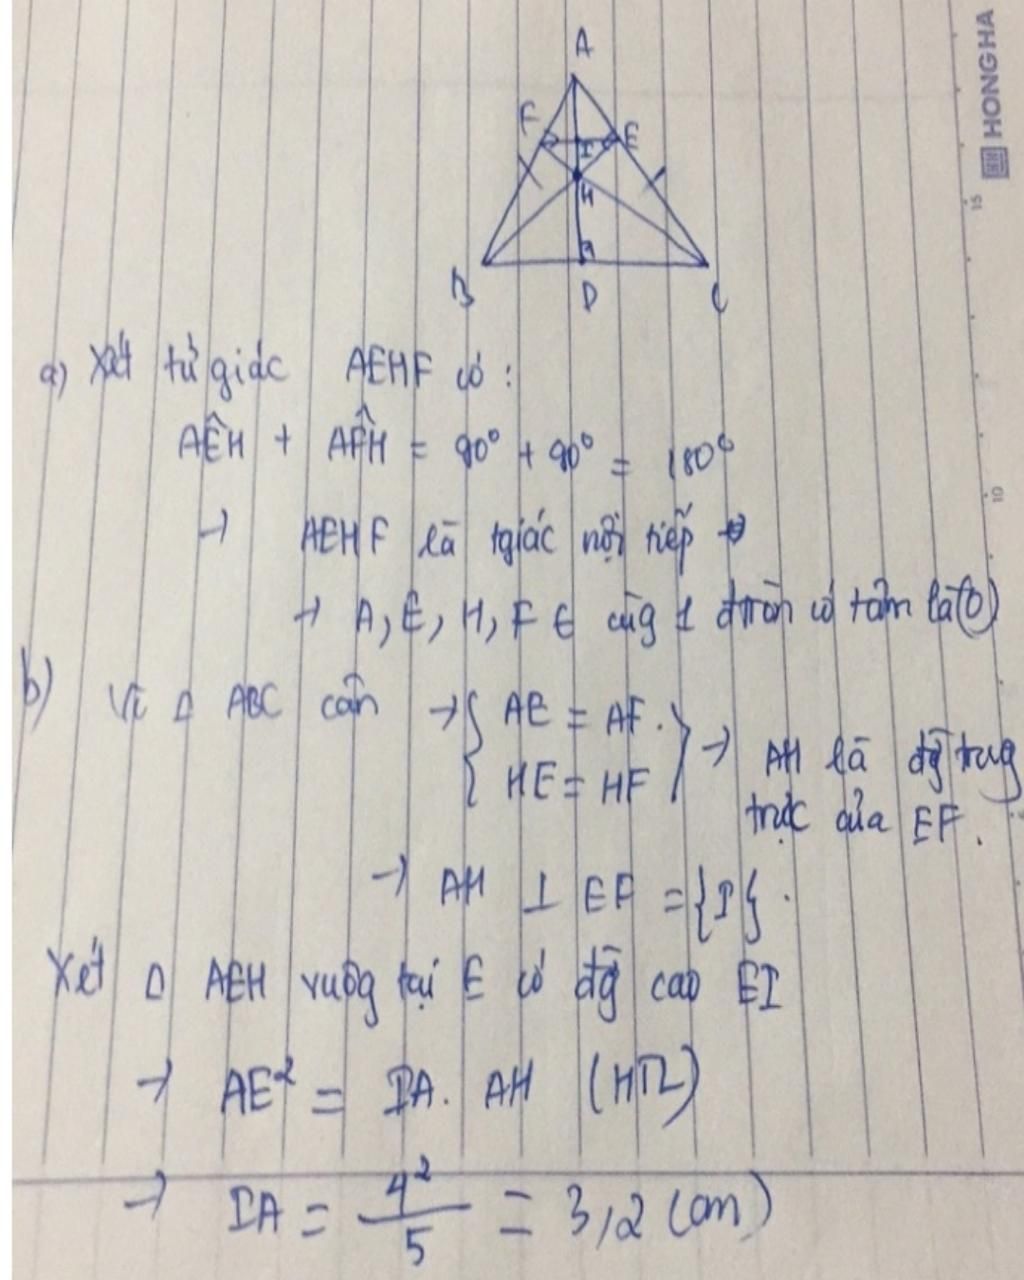 HONG HA
15
10
A
F
I
E
H
B
D
C
a) Xét tứ giác AEHF có :
AÊH + AF̂H = 90° + 90° = 180°
→ AEHF là tgiác nội tiếp
→ A, E, H, F ∈ cùg 1 đtròn có tâm là (O)
b) Vì Δ ABC cân → { AE = AF.
HE = HF } → AH là đg̃ trug
trực của EF.
→ AH ⊥ EF = {I}.
Xét Δ AEH vuôg tại E có đg̃ cao EI
→ AE² = IA. AH (HTL)
→ IA = 4²/5 = 3,2 (cm)